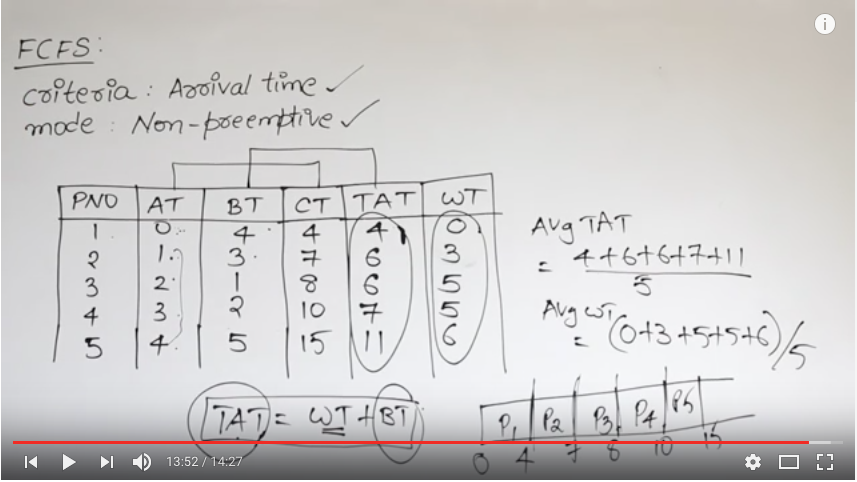 FCFS:
criteria : Arrival time ✓
mode : Non-preemptive ✓
PNO AT BT CT TAT WT
1 0 4 4 4 0
2 1 3 7 6 3
3 2 1 8 6 5
4 3 2 10 7 5
5 4 5 15 11 6
Avg TAT
= 4+6+6+7+11
5
Avg WT
= (0+3+5+5+6)/5
TAT = WT + BT
P1 P2 P3 P4 P5
0 4 7 8 10 15
13:52 / 14:27